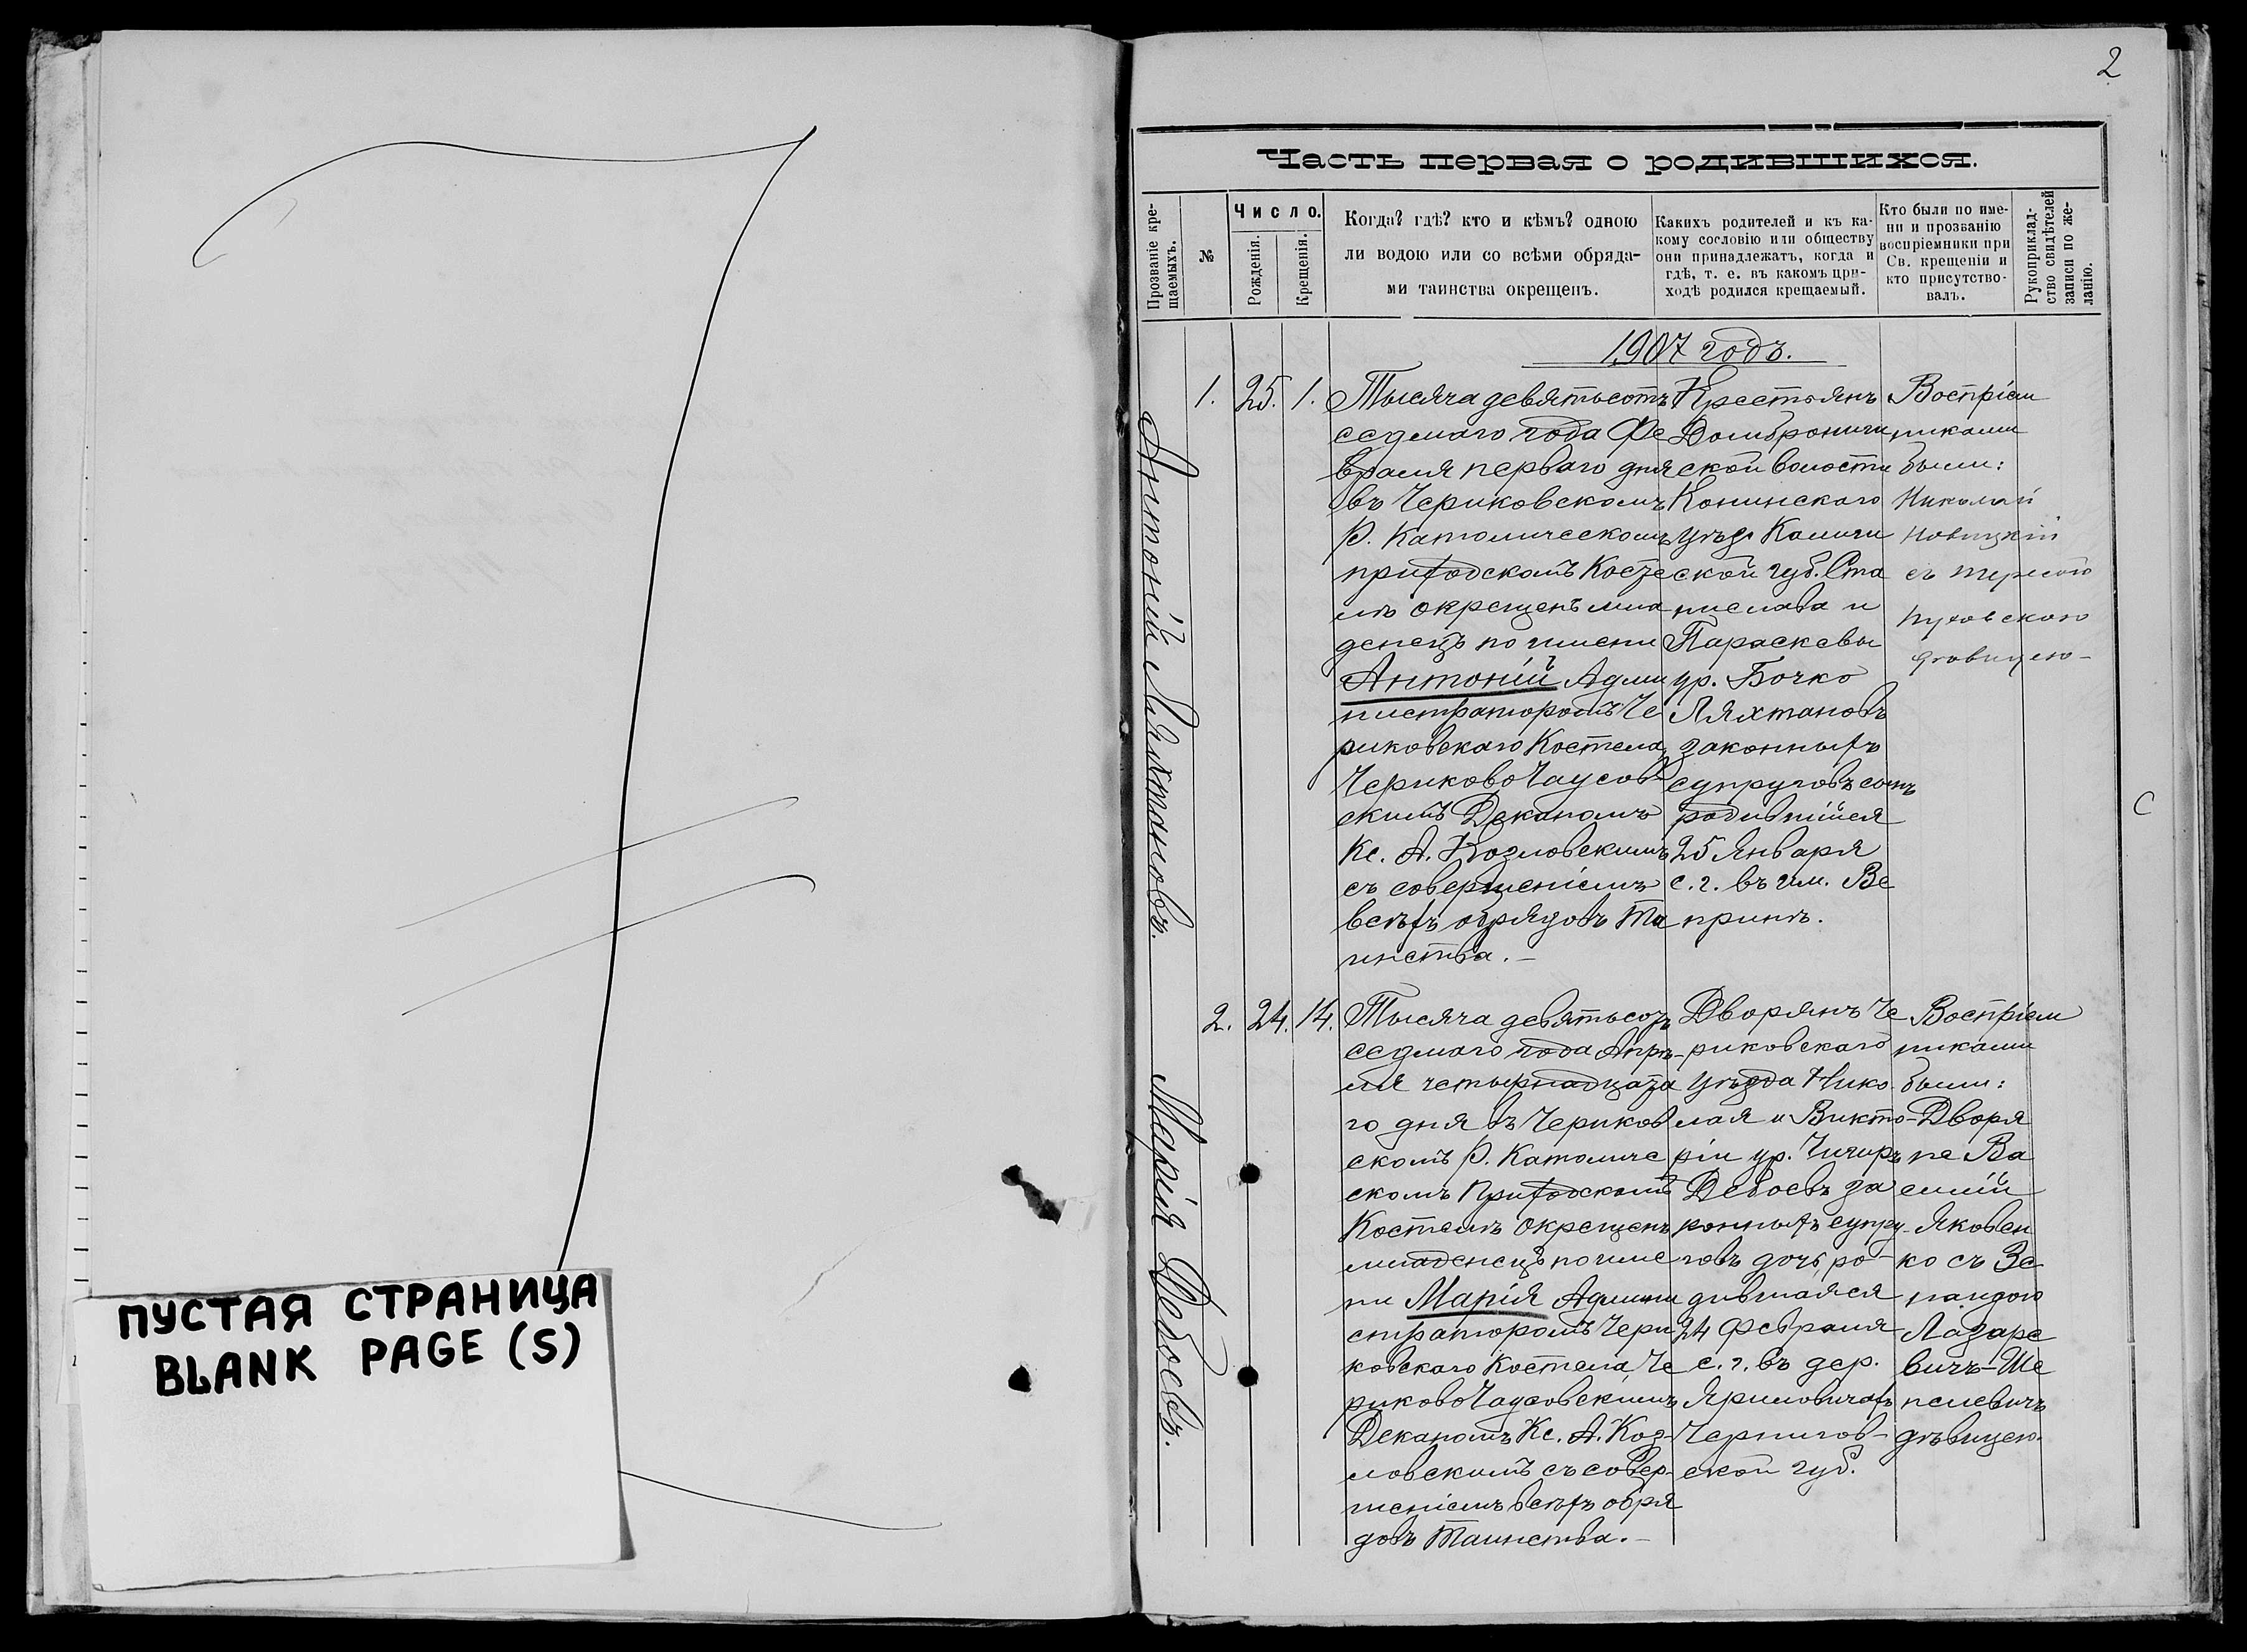 ПУСТАЯ СТРАНИЦА
BLANK PAGE (S)
2
Часть первая о родившихся.
Прозваніе кре-
щаемыхъ.
№
Число.
Рожденія.
Крещенія.
Когда? гдѣ? кто и кѣмъ? одною
ли водою или со всѣми обряда-
ми таинства окрещенъ.
Какихъ родителей и къ ка-
кому сословію или обществу
они принадлежатъ, когда и
гдѣ, т. е. въ какомъ при-
ходѣ родился крещаемый.
Кто были по име-
ни и прозванію
воспріемники при
Св. крещеніи и
кто присутство-
валъ.
Рукоприклад-
ство свидѣтелей
записи по же-
ланію.
1907 годъ.
Антоній Ляхтановъ.
1.
25.
1.
Тысяча девятьсотъ
седмаго года Фе
враля перваго дня
въ Чериковскомъ
Р. Католическомъ
приходскомъ Косте
лѣ окрещенъ мла
денецъ по имени
Антоній Адми
нистраторомъ Че
риковскаго Костела,
Чериково Чаусов
скимъ Деканомъ
Кс. А. Козловскимъ
съ совершеніемъ
всѣхъ обрядовъ Та
инства.-
Крестьянъ
Домбронич
ской волости
Конинскаго
уѣзд. Калиш
ской губ. Ста
нислава и
Параскевы
ур. Бочко
Ляхтановъ
законныхъ
супруговъ сынъ
родившійся
25 Января
с. г. въ им. Ве
принъ.
Воспріем
никами
были:
Николай
Новицкій
съ Терезою
Пуховскою
дѣвицею-
С
Марія Дебоевъ.
2.
24.
14.
Тысяча девятьсотъ
седмаго года Апрѣ-
ля четырнадцата
го дня въ Чериков
скомъ Р. Католиче
скомъ Приходскомъ
Костелѣ окрещенъ
младенецъ по име
ни Марія Админи
страторомъ Чери
ковскаго Костела, Че
риково Чаусовскимъ
Деканомъ Кс. А. Коз-
ловскимъ съ совер-
шеніемъ всѣхъ обря
довъ Таинства.-
Дворянъ Че
риковскаго
уѣзда Нико
лая и Викто-
ріи ур. Чичиръ
Дебоевъ за
конныхъ супру-
говъ дочь, ро-
дившаяся
24 Февраля
с. г. въ дер.
Яриловичахъ
Чернигов-
ской губ.
Воспріем
никами
были:
Дворя
не Ва
силій
Яковен
ко съ Зе
наидою
Лазаре
вичъ-Ше
пелевичъ
дѣвицею.